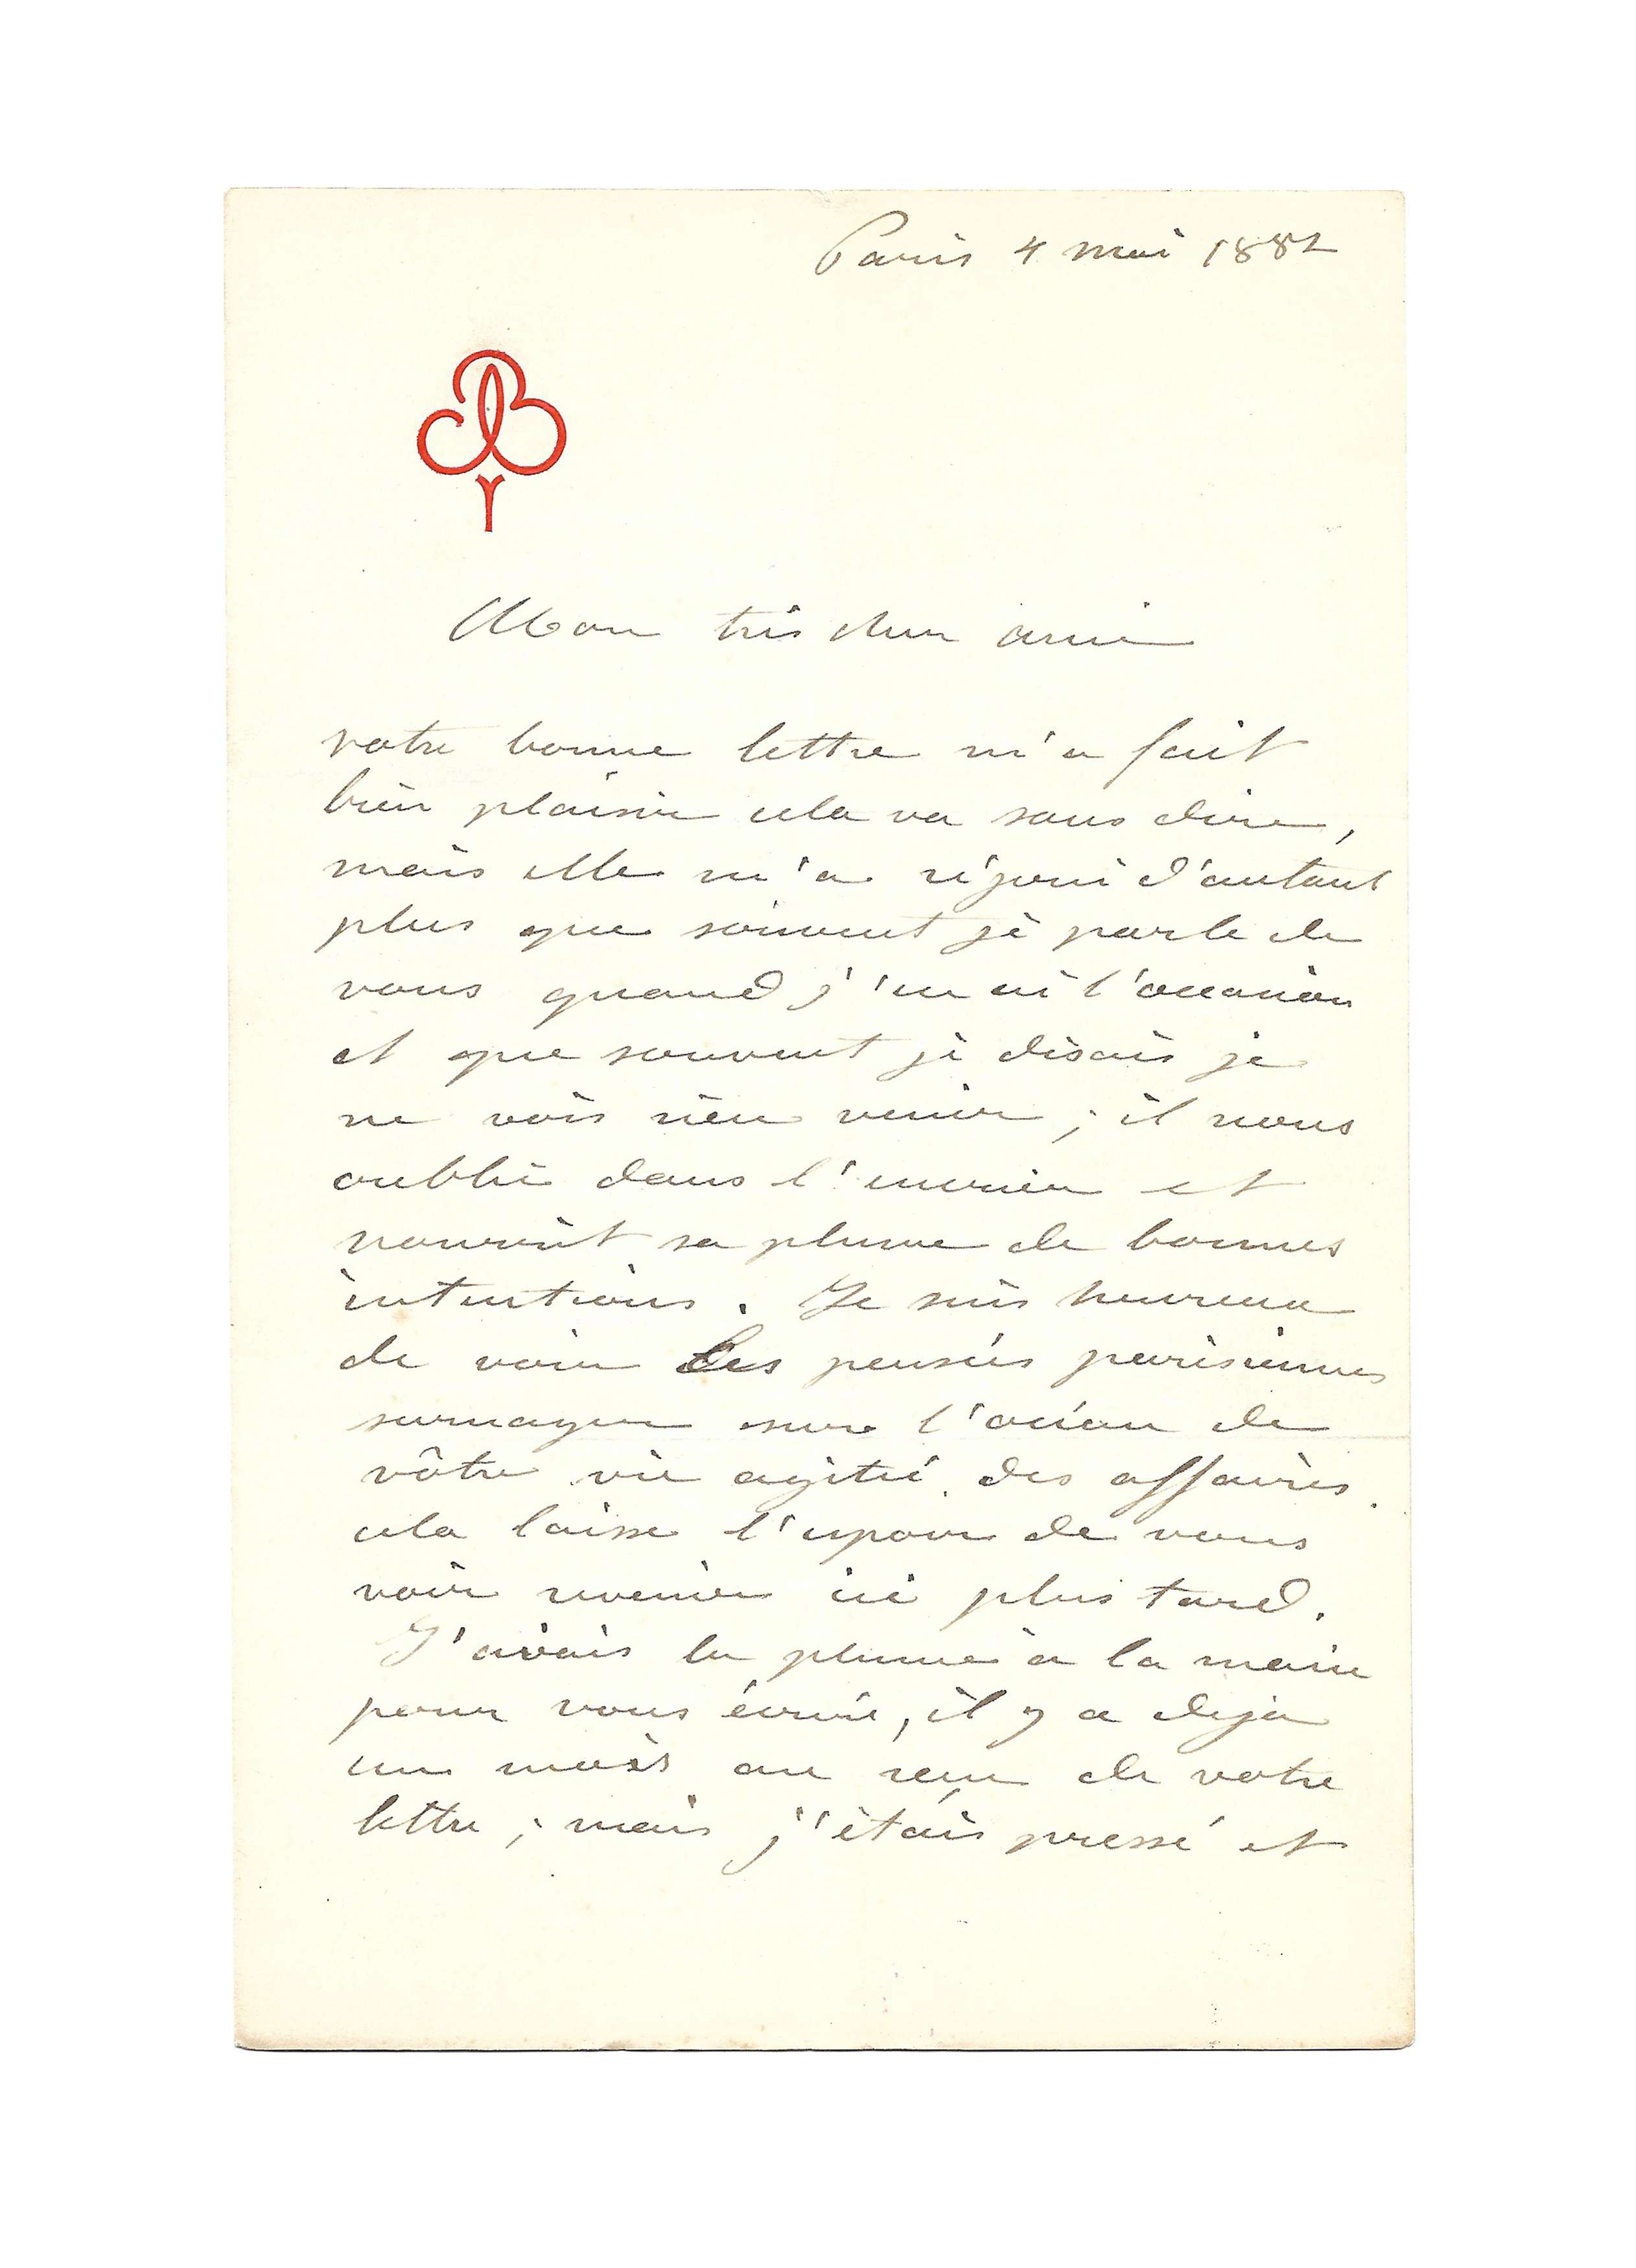 Paris 4 mai 1882
Mon très cher ami
votre bonne lettre m'a fait
bien plaisir cela va sans dire,
mais elle m'a réjoui d'autant
plus que souvent je parle de
vous quand j'en ai l'occasion
et que souvent je disais je
ne vois rien venir ; il nous
oublie dans l'encrier et
nourrit sa plume de bonnes
intentions. Je suis heureux
de voir les pensées parisiennes
surnager sur l'océan de
vôtre vie agitée des affaires.
cela laisse l'espoir de vous
voir revenir ici plus tard.
J'avais la plume à la main
pour vous écrire, il y a deja
un mois au reçu de votre
lettre ; mais j'étais pressé et